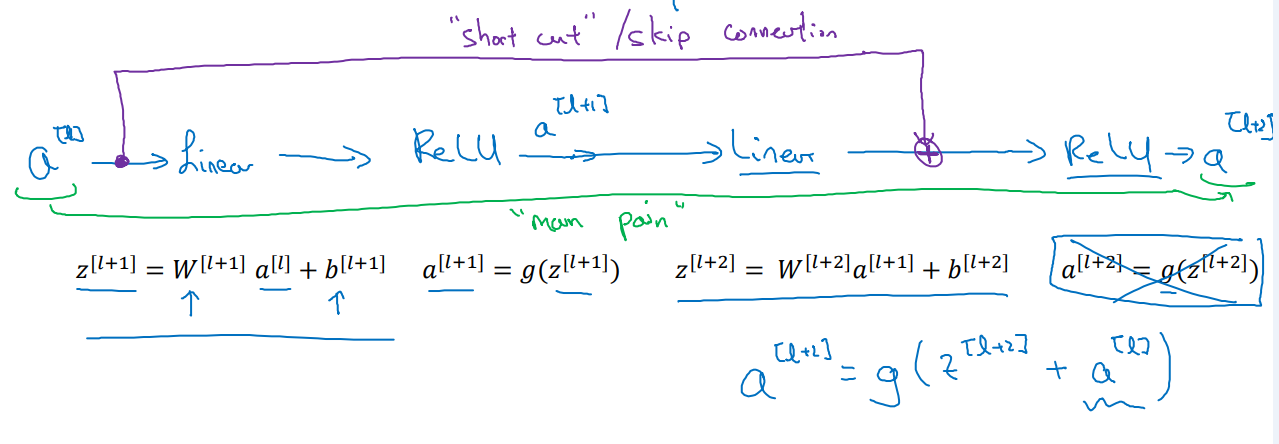 "short cut" / skip connection
a^[l] → Linear → ReLU a^[l+1] → Linear → ⊕ → ReLU → a^[l+2]
"main pain"
z^[l+1] = W^[l+1] a^[l] + b^[l+1] a^[l+1] = g(z^[l+1]) z^[l+2] = W^[l+2]a^[l+1] + b^[l+2] a^[l+2] = g(z^[l+2])
a^[l+2] = g(z^[l+2] + a^[l])